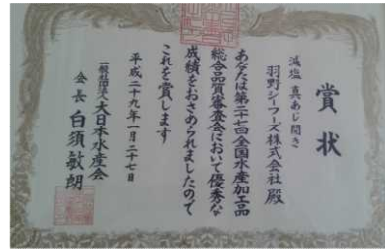 賞状
減塩 真あじ開き
羽野シーフーズ株式会社 殿
あなたは第二十七回全国水産加工品
総合品質審査会において優秀な
成績をおさめられましたので
これを賞します
平成二十九年一月二十七日
一般社団法人 大日本水産会
会長 白須敏朗